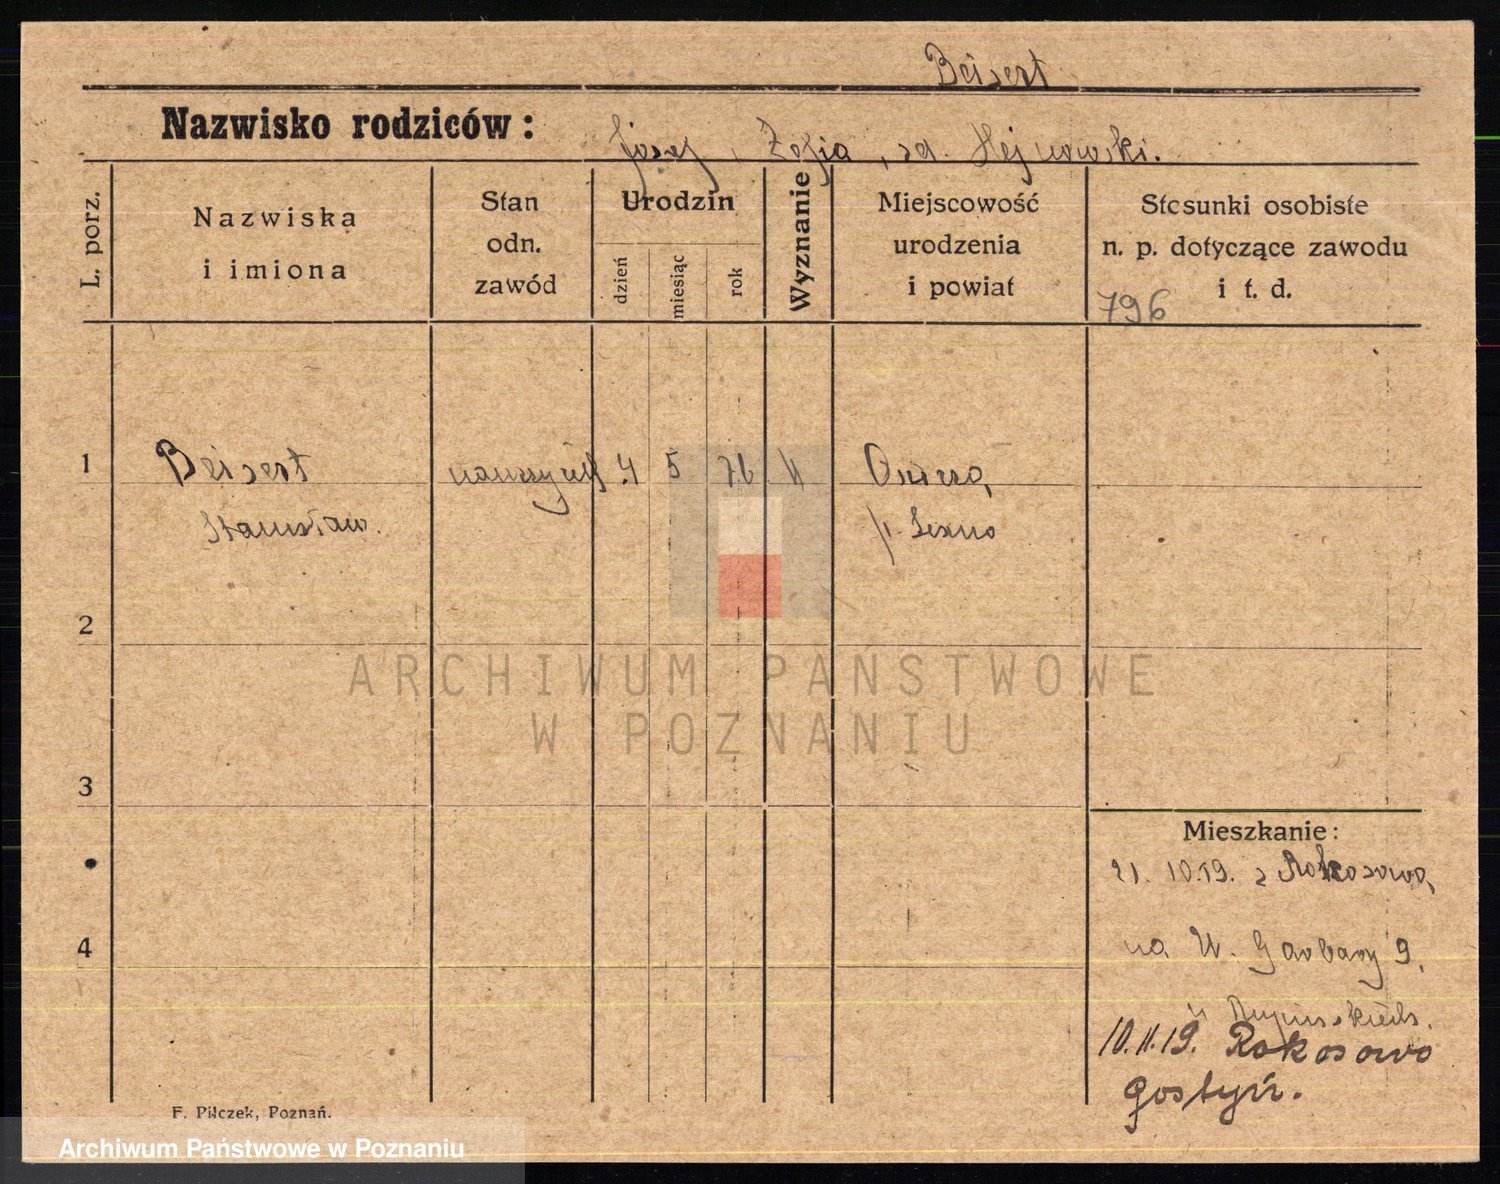 Beisert
Nazwisko rodziców:
Józef, Zofia, zd. Hejnowski.
L. porz.
Nazwiska
i imiona
Stan
odn.
zawód
Urodzin
dzień
miesiąc
rok
Wyznanie
Miejscowość
urodzenia
i powiat
Stosunki osobiste
n. p. dotyczące zawodu
i t. d.
796
1
Beisert
4 5 76
Osieczna,
Stanisław.
p. Leszno
2
ARCHIWUM PAŃSTWOWE
W POZNANIU
3
Mieszkanie:
21. 10.19. z Rokosowa,
4
na W. Garbary 9.
u
10.11.19. Rokosowo
Gostyń.
F. Pilczek, Poznań.
Archiwum Państwowe w Poznaniu